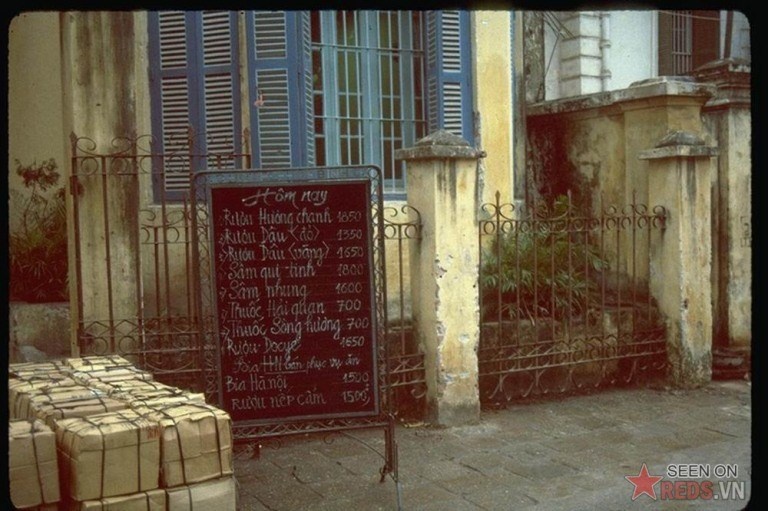 Hôm nay
Rượu Hương chanh 1850
Rượu Dâu (đỏ) 1350
Rượu Dâu (vàng) 1650
Sâm qui tinh 1800
Sâm nhung 1600
Thuốc Hải quan 700
Thuốc Sông hương 700
Rượu 1650
Bia HN bán phục vụ ăn
Bia Hà nội 1500đ
RƯỢU NẾP CẨM 1500đ
SEEN ON
REDS.VN